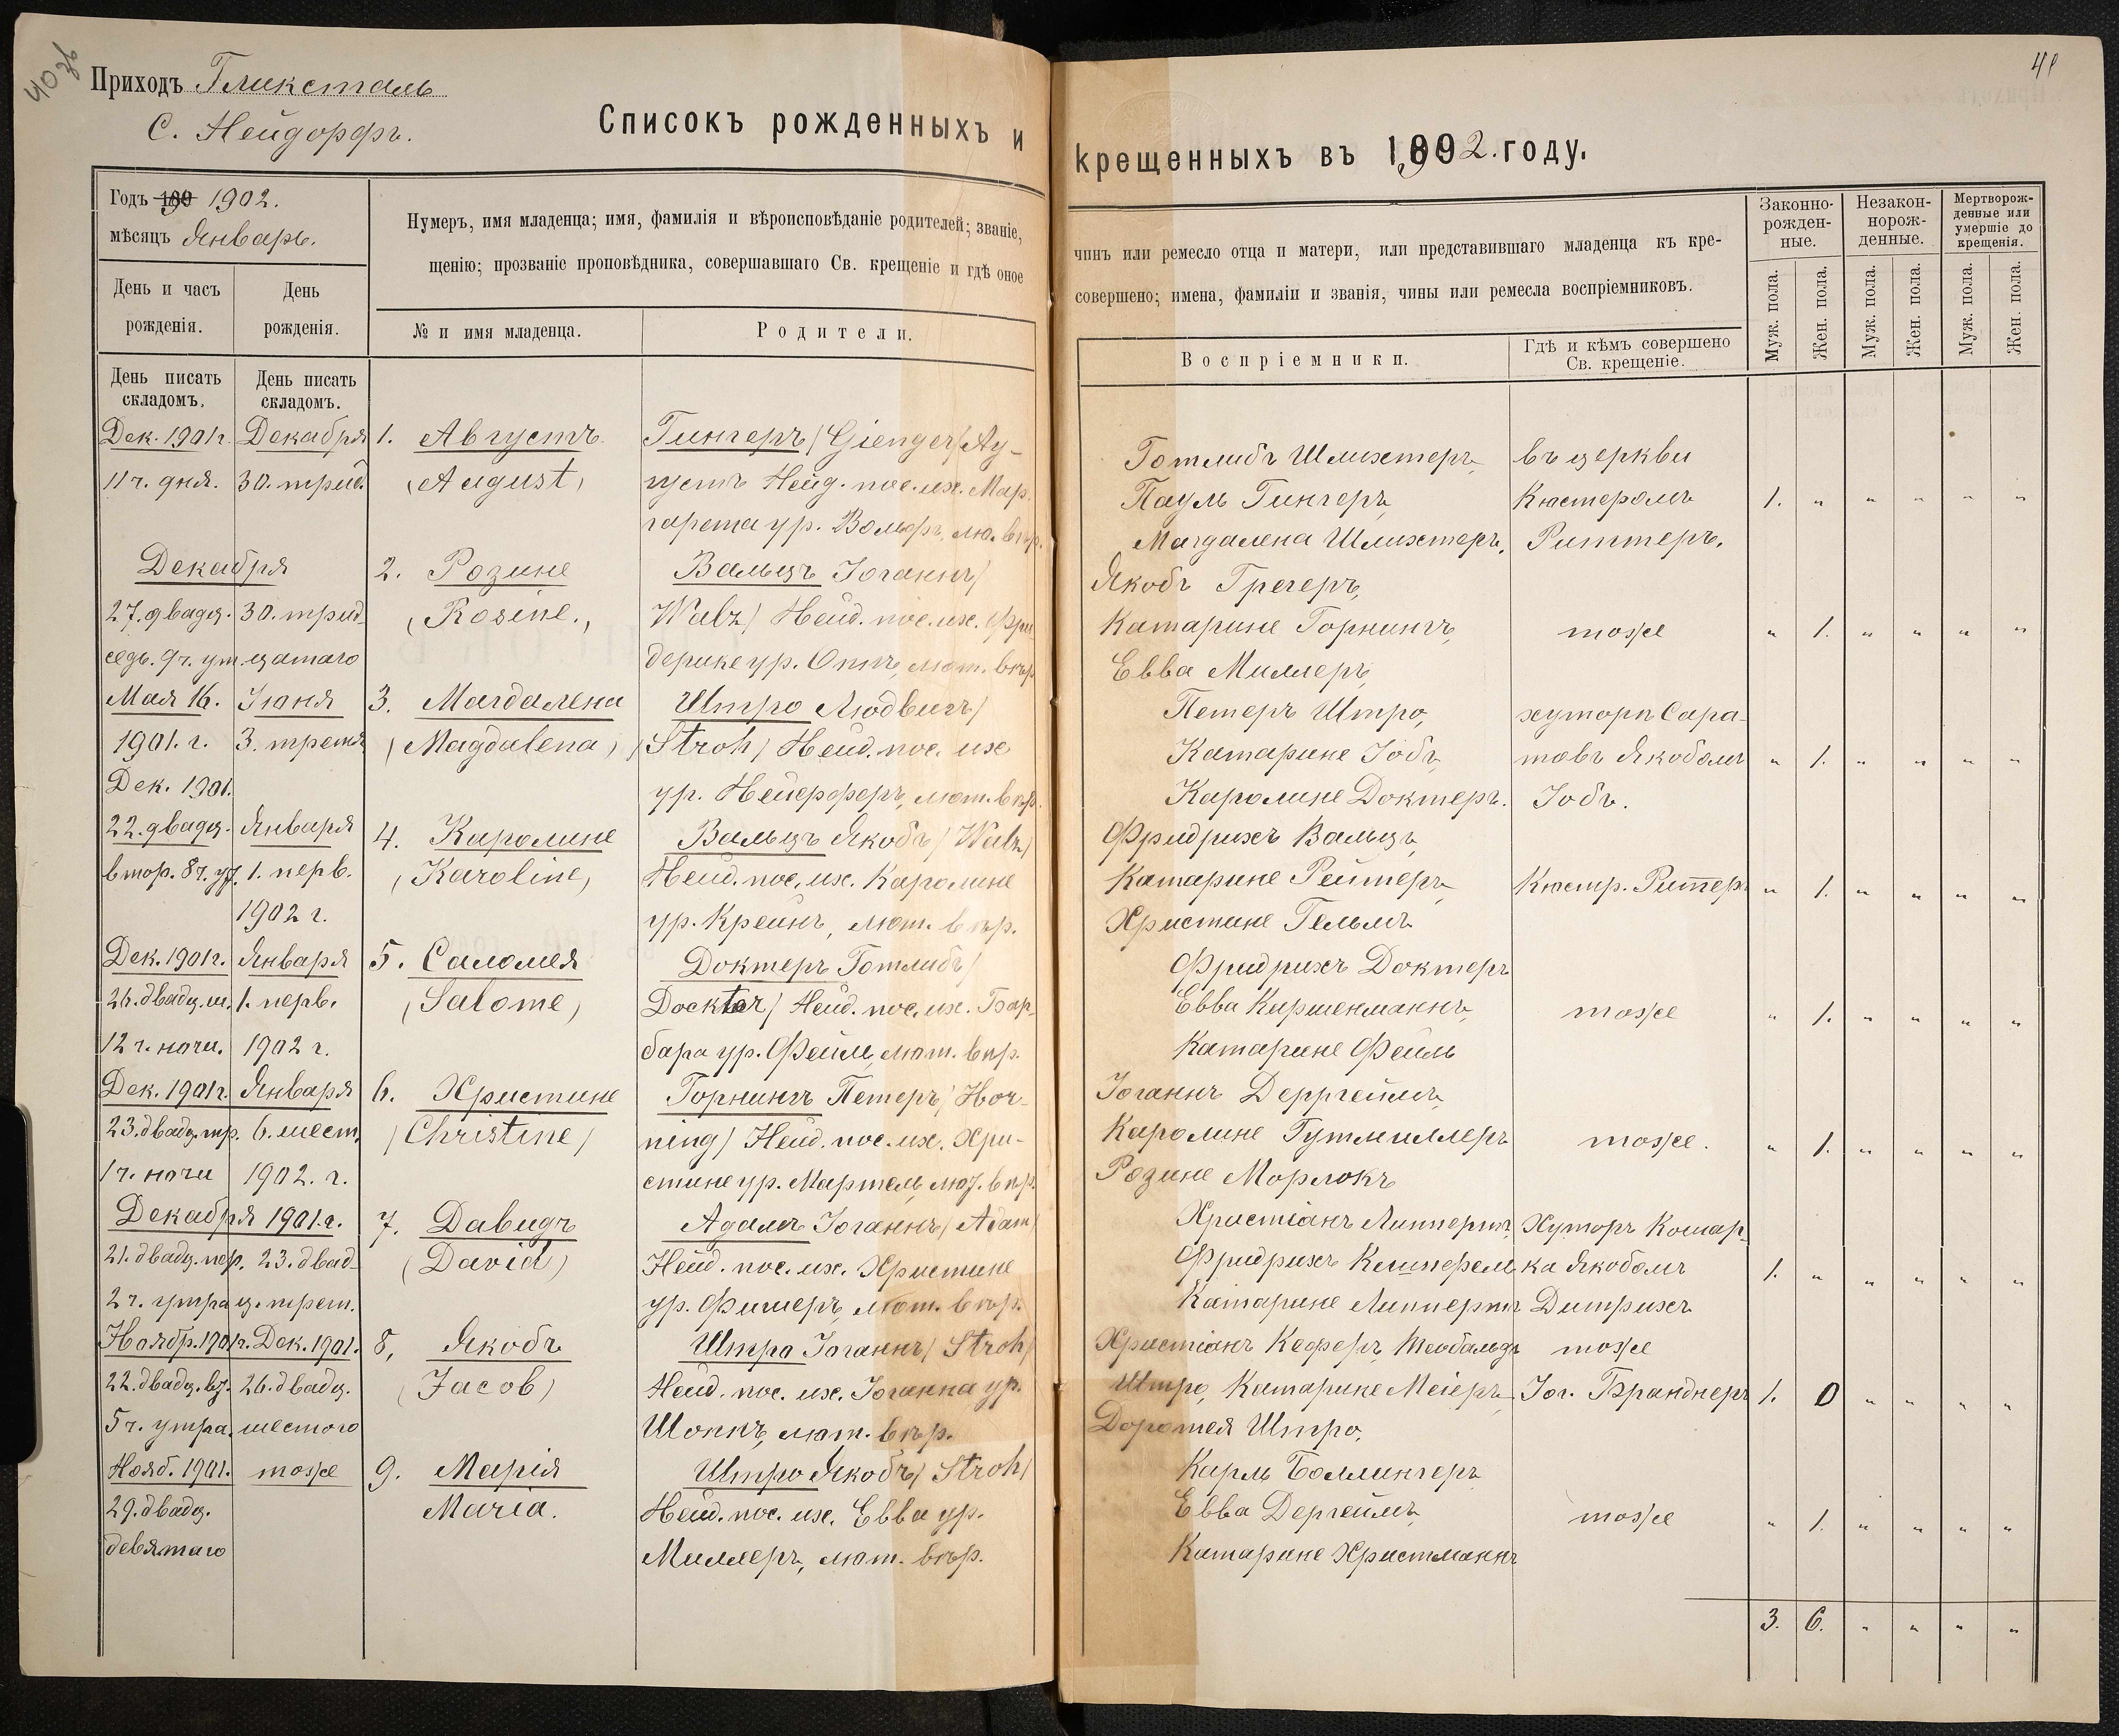 40 об
Приходъ Гликсталь
С. Нейдорфъ.
Списокъ рожденныхъ и
Годъ 189 1902.
мѣсяцъ Январь.
Нумеръ, имя младенца; имя, фамилія и вѣроисповѣданіе родителей; званіе,
щенію; прозваніе проповѣдника, совершавшаго Св. крещеніе и гдѣ оное
День и часъ
рожденія.
День
рожденія.
№ и имя младенца.
Родители.
День писать
складомъ.
День писать
складомъ.
Дек. 1901г. Декабря 1. Августъ Гингеръ (Gienger) Ау-
11 ч. дня. 30. трид. (August) густъ Нейд. пос. их. Мар-
гарета ур. Вольфъ, лю. вѣр.
Декабря 2. Розине Вальцъ Іоганнъ (
27. двадц. 30. трид- (Rosine.) Walz) Нейд. пос. их. Фри
седь. 9ч. ут. цатаго дерике ур. Оттъ, лют. вѣр.
Мая 16. Іюня 3. Магдалена Штро Людвигъ (
1901. г. 3. третя (Magdalena) (Stroh) Нейд. пос. их
Дек. 1901. ур. Нейерферъ, лют. вѣр.
22. двадц. Января 4. Каролине Вальцъ Якобъ (Walz)
втор. 8ч. ут. 1. перв. (Karoline) Нейд. пос. их. Каролине
1902 г. ур. Крейнъ, лют. вѣр.
Дек. 1901г. Января 5. Саломея Доктеръ Готлибъ (
26. двадц. ш. 1. перв. (Salome) Docktor) Нейд. пос. их. Бар-
12 ч. ночи. 1902 г. бара ур. Фейль, лют. вѣр.
Дек. 1901г. Января 6. Христине Горнингъ Петеръ (Hor-
23. двадц. тр. 6. шест. (Christine) ning) Нейд. пос. их. Хри-
1 ч. ночи 1902. г. стине ур. Мартель, лют. вѣр.
Декабря 1901. г. 7. Давидъ Адамъ Іоганнъ (Adam)
21. двадц. пер. 23. двад- (David) Нейд. пос. их. Христине
2 ч. утра ц. трет. ур. Фишеръ, лют. вѣр.
Ноябр. 1901г. Дек. 1901. 8. Якобъ Штра Іоганнъ (Stroh)
22. двадц. вт. 26. двадц. (Jacob) Нейд. пос. их. Іоганна ур.
5 ч. утра. шестого Шоппъ, лют. вѣр.
Нояб. 1901. тоже 9. Марія Штро Якобъ (Stroh)
29. двадц. Maria. Нейд. пос. их. Евва ур.
девятаго Миллеръ, лют. вѣр.
41
крещенныхъ въ 1902. году.
чинъ или ремесло отца и матери, или представившаго младенца къ кре-
совершено; имена, фамиліи и званія, чины или ремесла воспріемниковъ.
Законно-
рожден-
ные.
Незакон-
норож-
денные.
Мертворож-
денные или
умершіе до
крещенія.
Воспріемники.
Гдѣ и кѣмъ совершено
Св. крещеніе.
Муж. пола.
Жен. пола.
Муж. пола.
Жен. пола.
Муж. пола.
Жен. пола.
Готлибъ Шлихтеръ, въ церкви
Пауль Гингеръ, Кюстеромъ 1. " " " " "
Магдалена Шлихтеръ, Риттеръ.
Якобъ Грегеръ,
Катарине Горнингъ, тоже " 1. " " " "
Евва Миллеръ,
Петеръ Штро, хуторъ Сара-
Катарине Іобъ, товъ Якобомъ " 1. " " " "
Каролине Доктеръ. Іобъ.
Фридрихъ Вальцъ,
Катарине Рейтеръ, Кюстр. Риттер. " 1. " " " "
Христине Гельмъ
Фридрихъ Доктеръ
Евва Киршенманнъ, тоже " 1. " " " "
Катарине Фейль
Іоганнъ Дерргеймъ,
Каролине Гутмиллеръ тоже. " 1. " " " "
Розине Морлокъ
Христіанъ Липпертъ, Хуторъ Комар-
Фридрихъ Кемпфель ка Якобомъ 1. " " " " "
Катарине Липпертъ Дитрихъ
Христіанъ Кеферъ, Теобальдъ тоже
Штро, Катарине Мейеръ, Іог. Бранднеръ 1. 0 " " " "
Доротея Штро.
Карлъ Боллингеръ
Евва Дергеймъ, тоже " 1. " " " "
Катарине Христманнъ
3. 6. " " " "